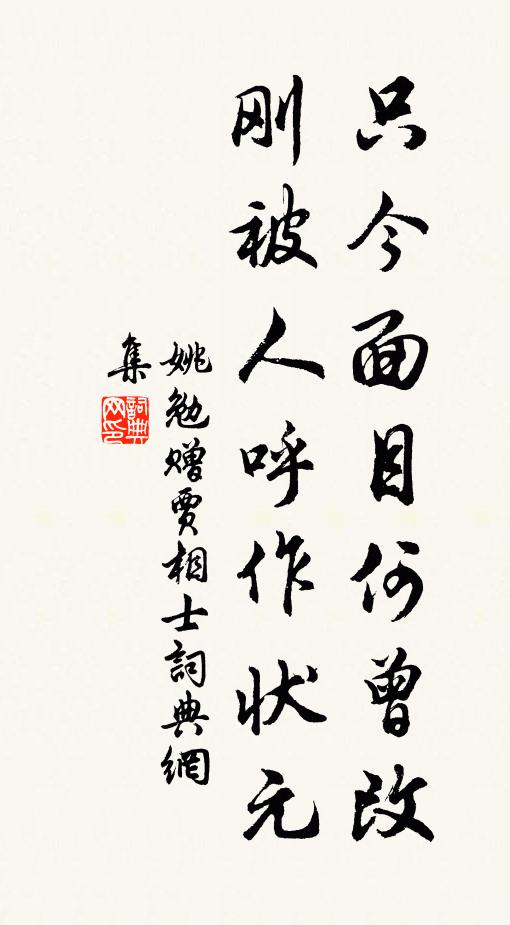 只今面目何曾改
刚被人呼作状元
姚勉赠贾相士詞典網
集
詞典
网印